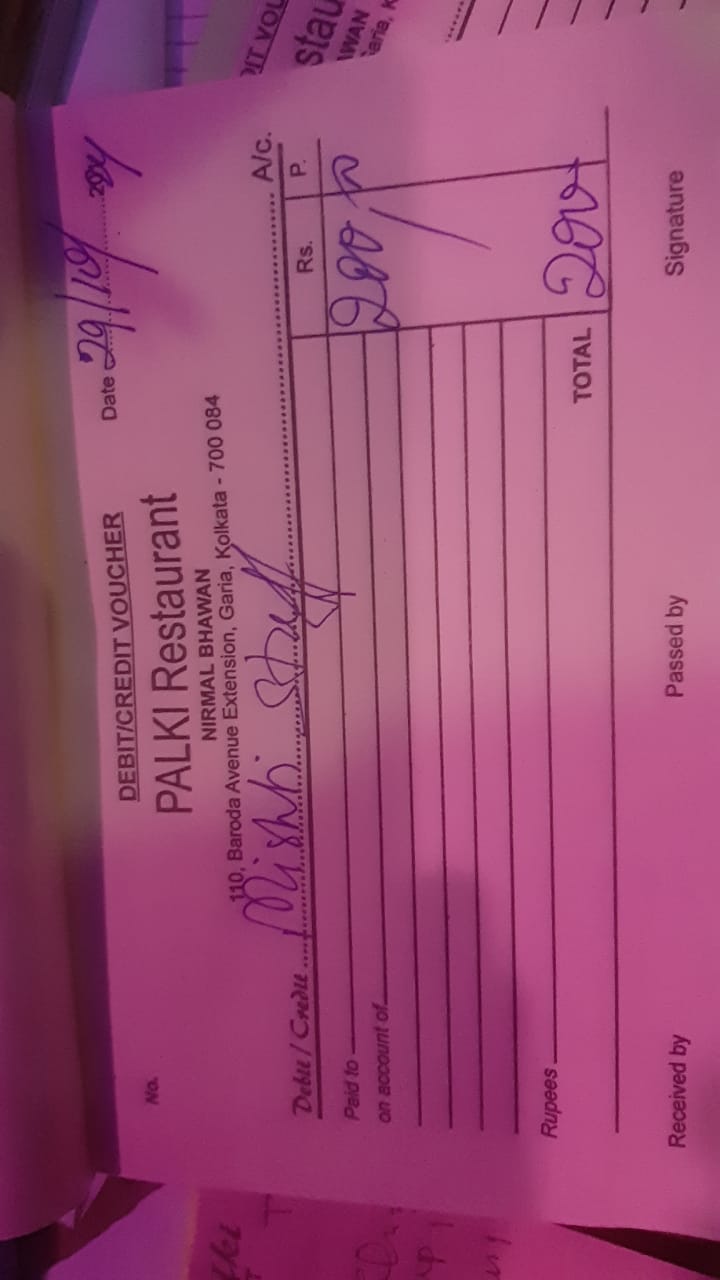 DEBIT/CREDIT VOUCHER
No.
Date 29/10/ 2024
PALKI Restaurant
NIRMAL BHAWAN
110, Baroda Avenue Extension, Garia, Kolkata - 700 084
Debit / Credit Mishti Staff A/c.
Rs. P.
Paid to 200/
on account of
Rupees
TOTAL 200/
Received by Passed by Signature